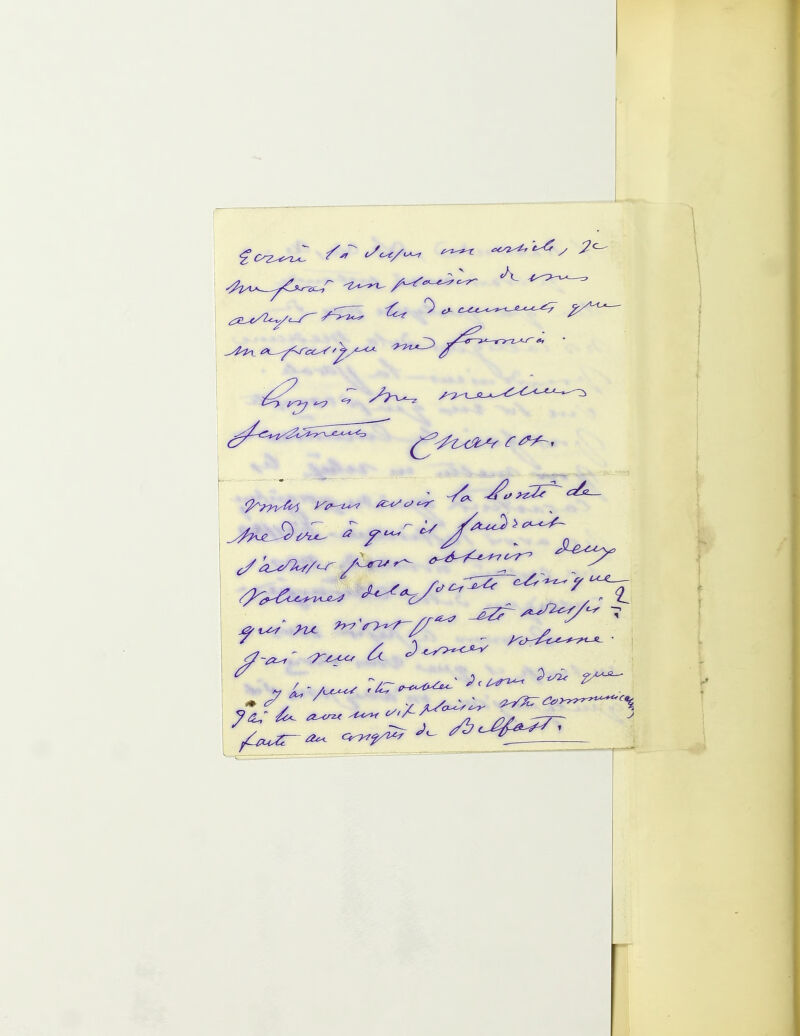 Ecrire là dessus un article, je
me ferai un plaisir de vous
adresser tous les documents que
ma pratique me fournira.
Croyez à mes meilleurs
sentiments Charcot.
voulez vous avoir la bonté de
me dire à qui il faudrait
s'adresser pour obtenir deux
Volumes de la Société clinique
qui ne m'ont pas été adressés?
J'ai reçu le dernier volume.
J'ai peut être oublié de vous dire que
J'ai lu avec un vif plaisir votre communication
faite au congrès de Belfast.